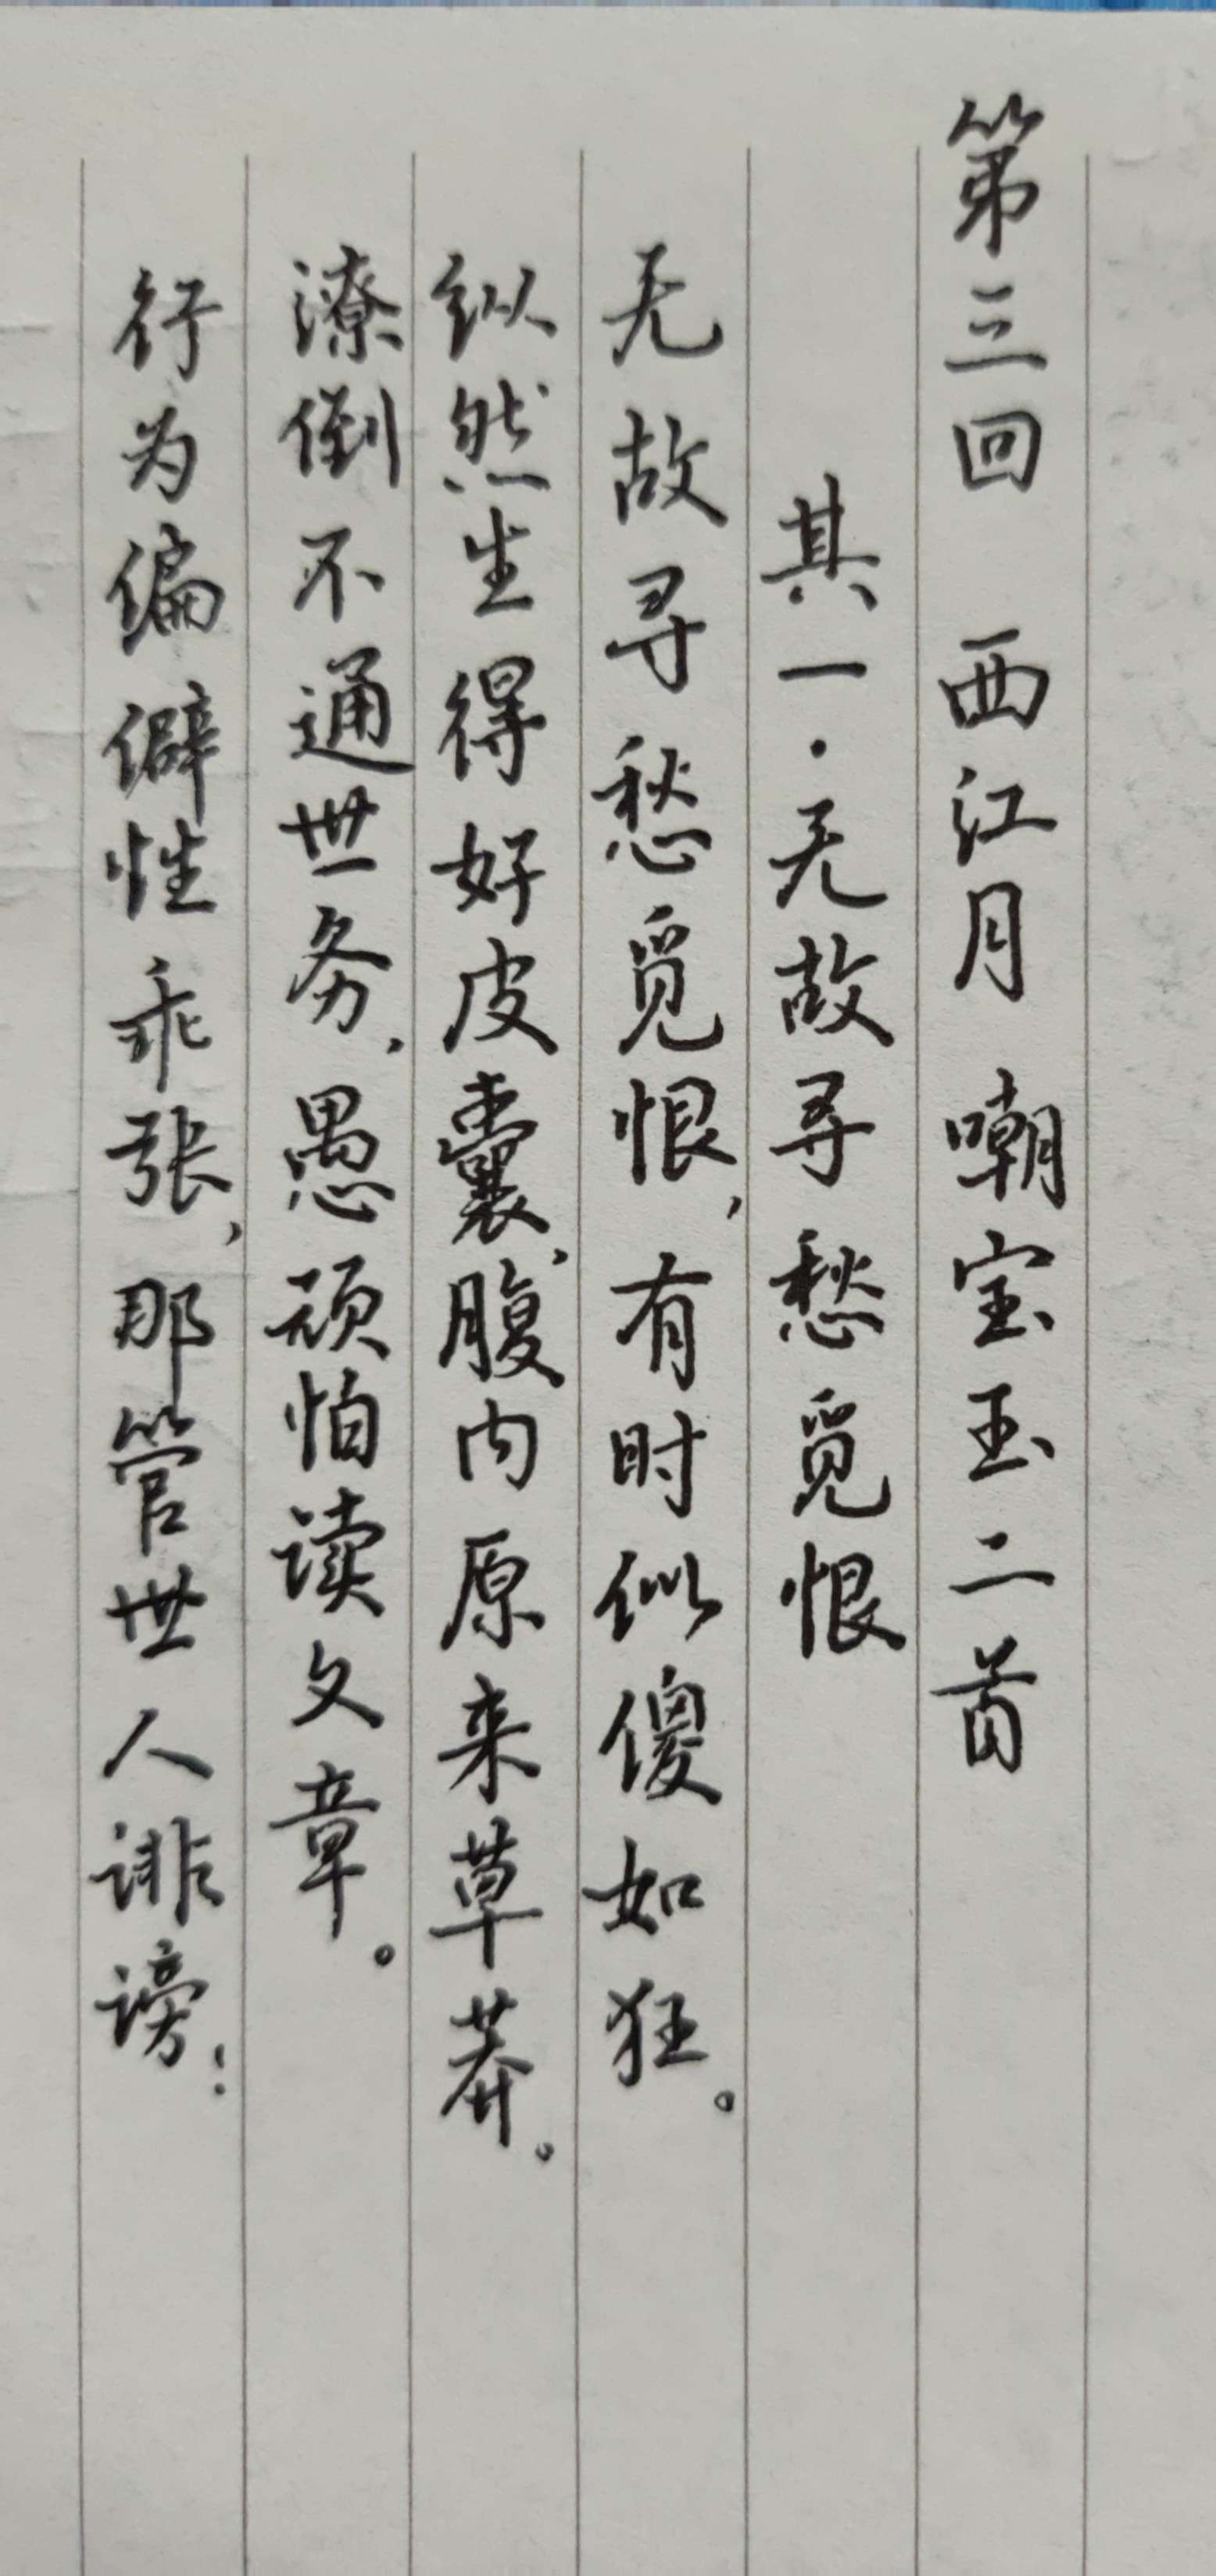 第三回 西江月 嘲宝玉二首
其一·无故寻愁觅恨
无故寻愁觅恨,有时似傻如狂。
纵然生得好皮囊,腹内原来草莽。
潦倒不通世务,愚顽怕读文章。
行为偏僻性乖张,那管世人诽谤!